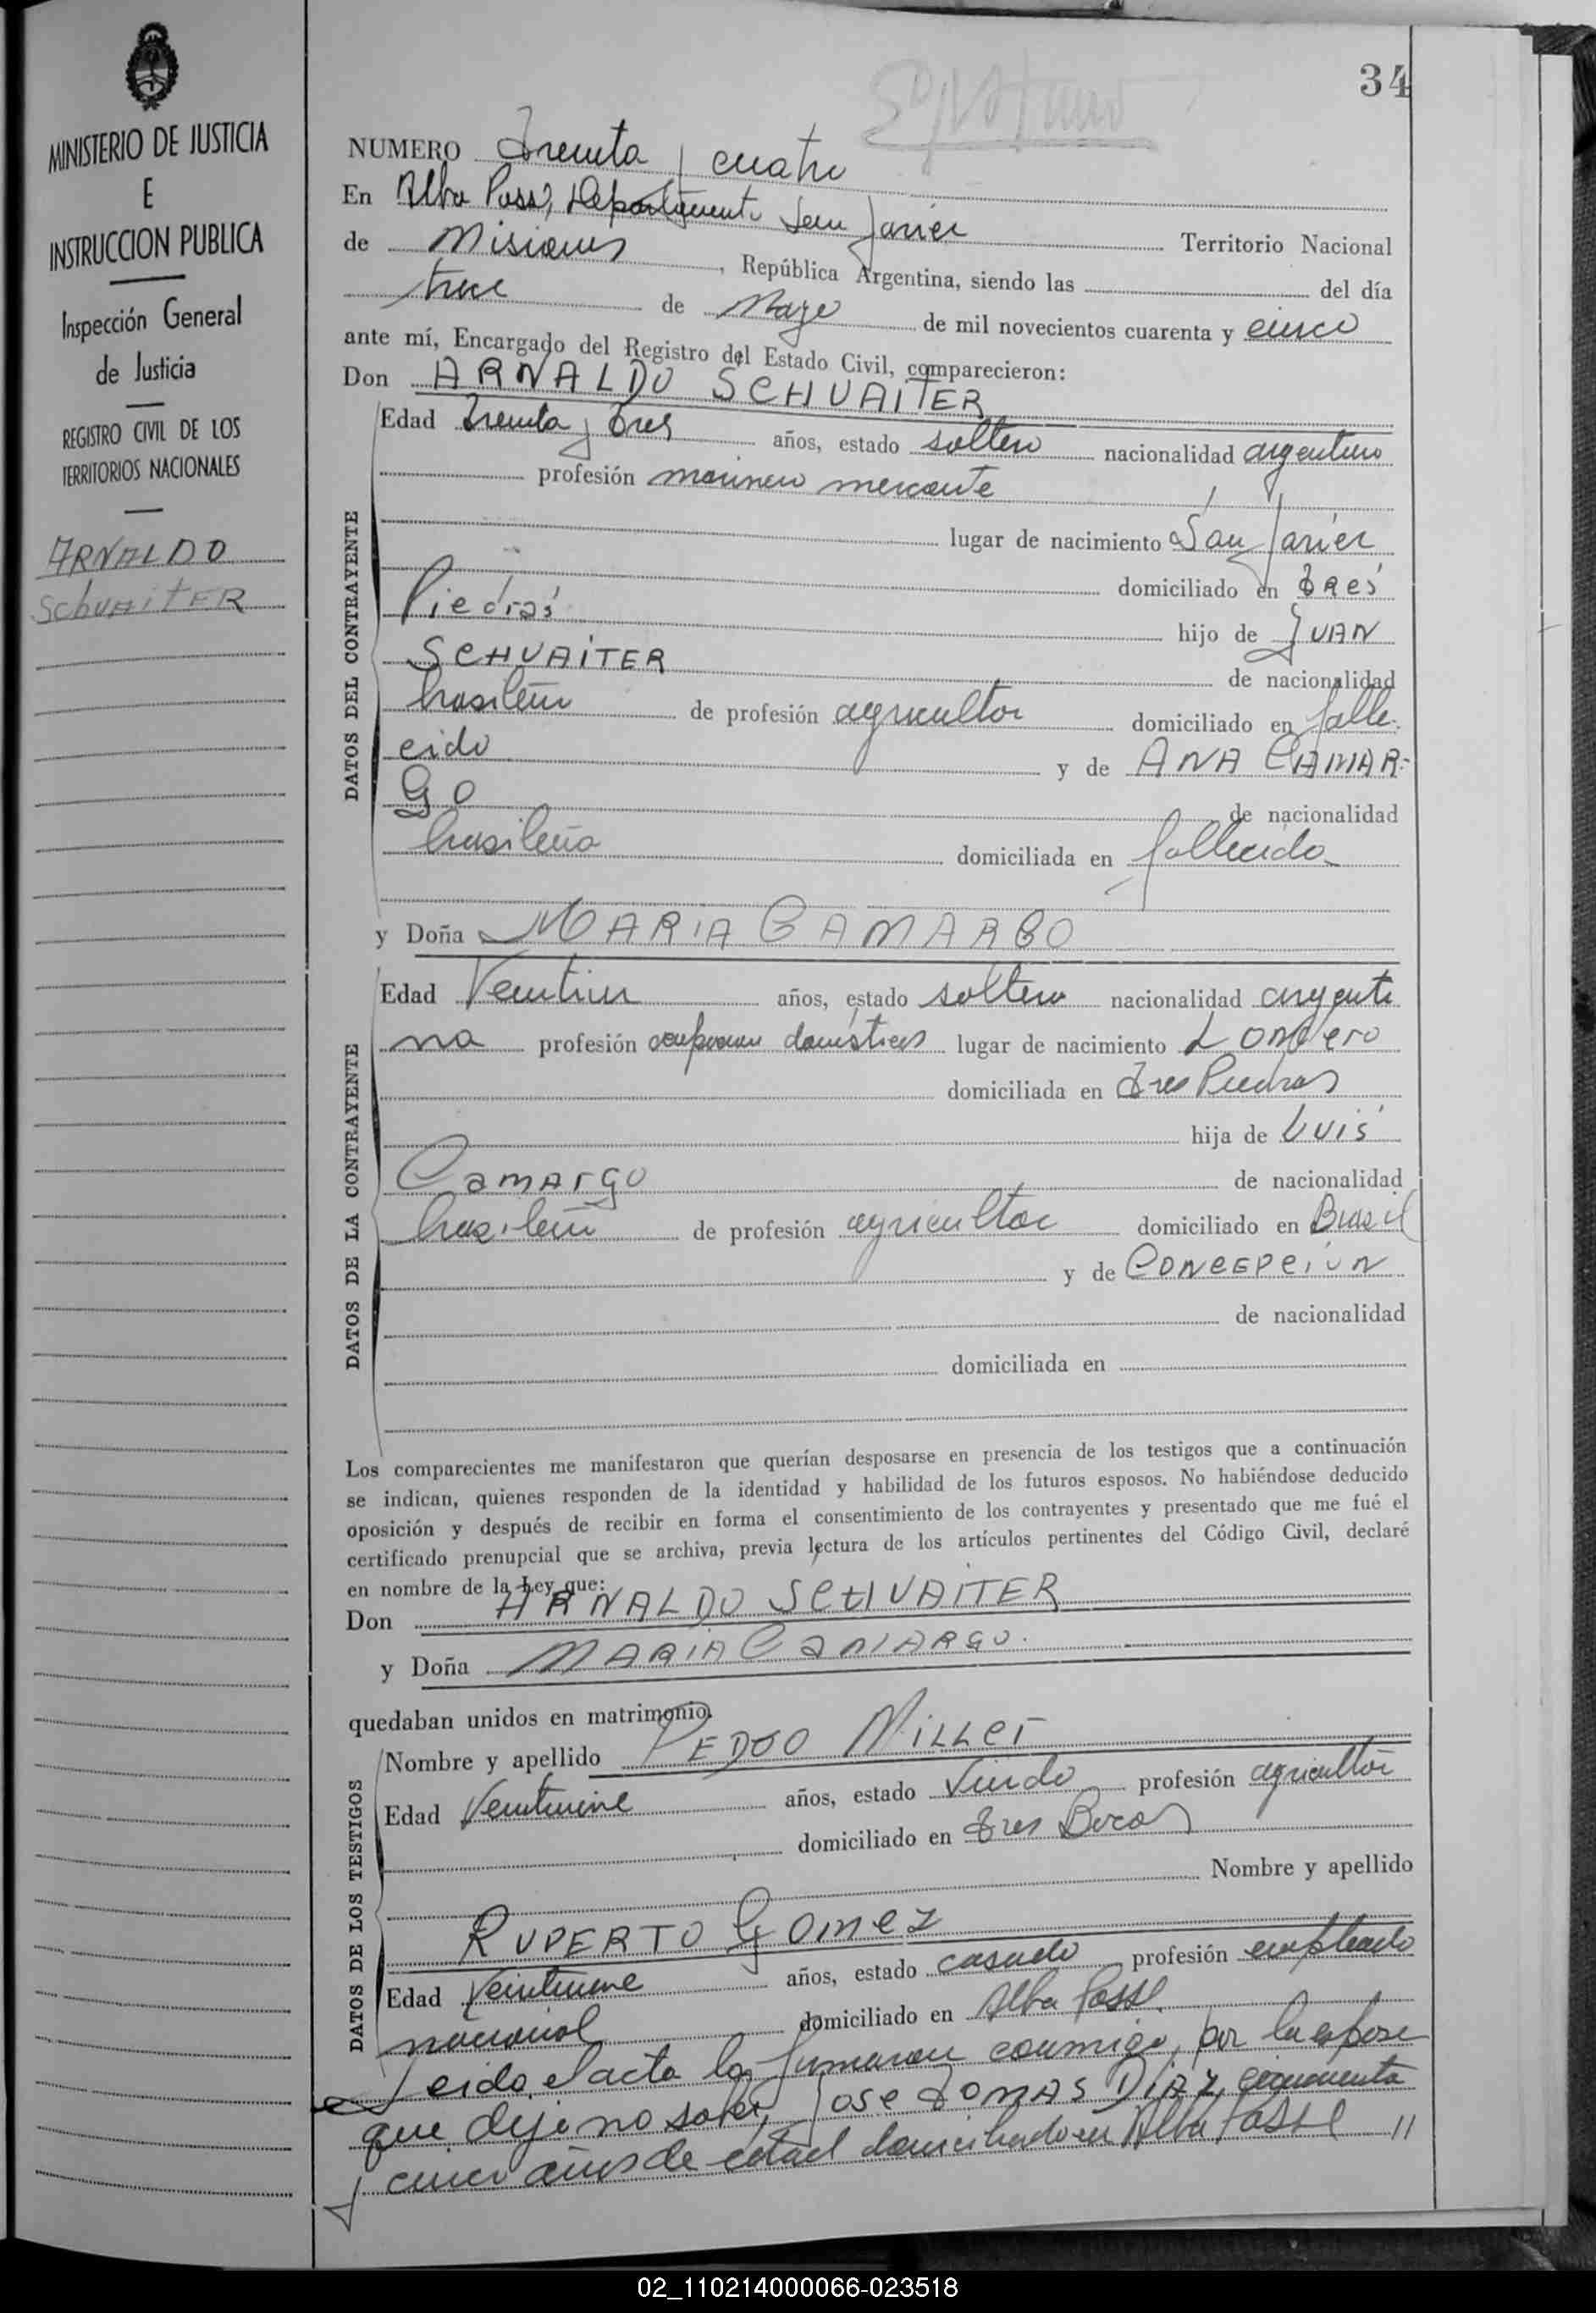 34
MINISTERIO DE JUSTICIA
E
INSTRUCCION PUBLICA
Inspección General
de Justicia
REGISTRO CIVIL DE LOS
TERRITORIOS NACIONALES
ARNALDO
SCHUAITER
NUMERO Treinta y cuatro
En Alba Posse, Departamento San Javier
de Misiones Territorio Nacional
, República Argentina, siendo las del día
trece de Mayo de mil novecientos cuarenta y cinco
ante mí, Encargado del Registro del Estado Civil, comparecieron:
Don ARNALDO SCHUAITER
DATOS DEL CONTRAYENTE
Edad Treinta y tres años, estado soltero nacionalidad argentino
profesión marinero mercante
lugar de nacimiento San Javier
domiciliado en tres
Piedras hijo de JUAN
SCHUAITER de nacionalidad
brasileño de profesión agricultor domiciliado en falle-
cido y de ANA CAMAR-
GO de nacionalidad
brasileña domiciliada en fallecida
y Doña MARIA CAMARGO
DATOS DE LA CONTRAYENTE
Edad Veintiun años, estado soltera nacionalidad argenti
na profesión domésticas lugar de nacimiento
domiciliada en Tres Piedras
hija de Luis
Camargo de nacionalidad
brasileño de profesión agricultor domiciliado en Brasil
y de CONCEPCION
de nacionalidad
domiciliada en
Los comparecientes me manifestaron que querían desposarse en presencia de los testigos que a continuación
se indican, quienes responden de la identidad y habilidad de los futuros esposos. No habiéndose deducido
oposición y después de recibir en forma el consentimiento de los contrayentes y presentado que me fué el
certificado prenupcial que se archiva, previa lectura de los artículos pertinentes del Código Civil, declaré
en nombre de la Ley que:
Don ARNALDO SCHUAITER
y Doña MARIA CAMARGO.
quedaban unidos en matrimonio.
DATOS DE LOS TESTIGOS
Nombre y apellido PEDRO MILLER
Edad Veintinueve años, estado Viudo profesión agricultor
domiciliado en Tres Bocas
Nombre y apellido
RUPERTO GOMEZ
Edad Veintinueve años, estado casado profesión empleado
nacional domiciliado en Alba Posse.
Leida el acta la firmaron conmigo, por la esposa
que dijo no saber, JOSE TOMAS DIAZ, cincuenta
y cinco años de edad domiciliado en Alba Posse //
02_110214000066-023518